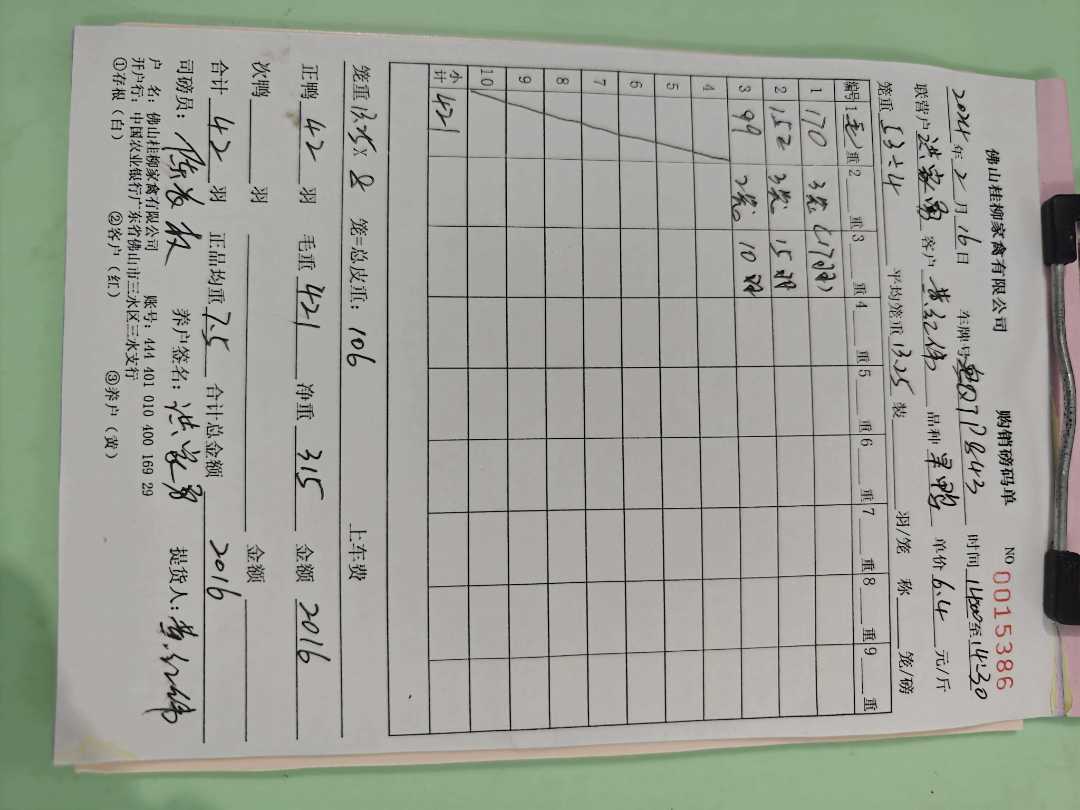 佛山桂柳家禽有限公司 购销磅码单 NO 0015386
2024年2月16日 车牌号粤Q7P843 时间14:00至14:30
联营户洪家富 客户黄红伟 品种旱鸭 单价6.4元/斤
笼重53÷4 平均笼重13.25 装 羽/笼 称 笼/磅
编号 1毛重 2 重 3 重 4 重 5 重 6 重 7 重 8 重 9 重
1 170 3笼(17羽)
2 152 3笼 15羽
3 99 2笼 10羽
4
5
6
7
8
9
10
小计 421
笼重13.25×8 笼=总皮重:106 上车费
正鸭42羽 毛重421 净重315 金额2016
次鸭 羽 金额
合计42羽 正品均重7.5 合计总金额2016
司磅员: 养户签名:洪家富 提货人:黄红伟
户 名:佛山桂柳家禽有限公司 账号:444 401 010 400 169 29
开户行:中国农业银行广东省佛山市三水区三水支行
①存根(白) ②客户(红) ③养户(黄)